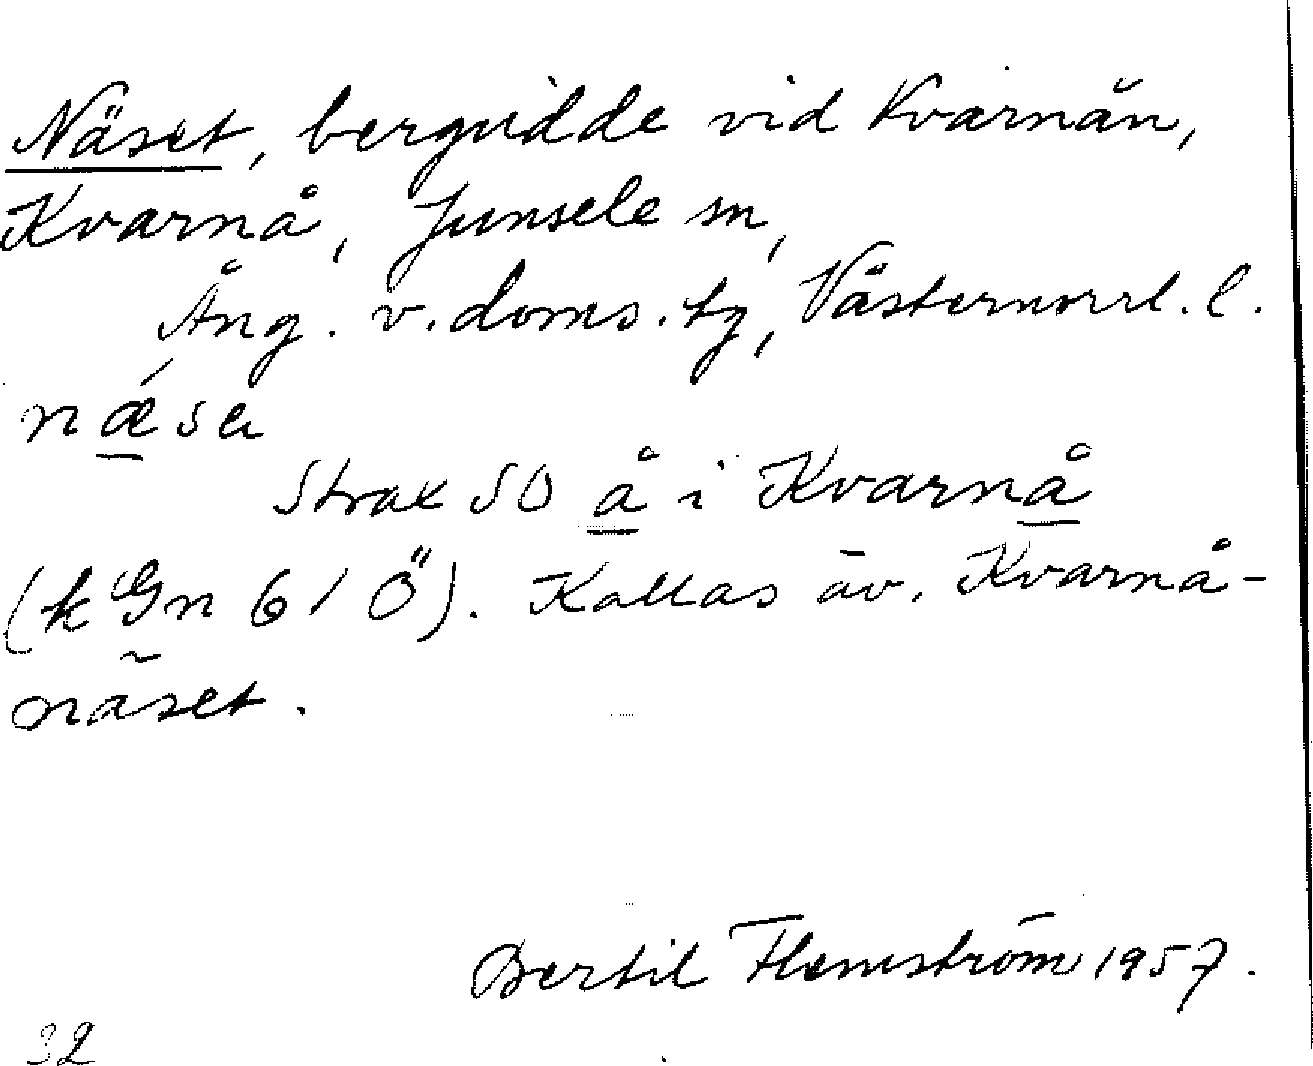 Näset, bergudde vid Kvarnån,
Kvarnå, Junsele sn,
Ång. v. doms. tg, Västernorrl. l.
næ´sa
Strax SO å i Kvarnå
(k Gn 61 Ö). Kallas äv. Kvarnå-
näset.
Bertil Flemström 1957.
32